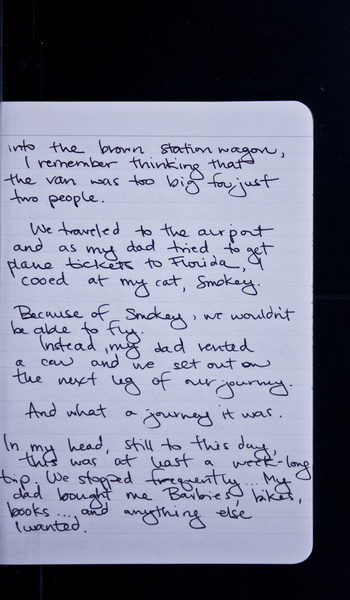 into the brown station wagon,
I remember thinking that
the van was too big for just
two people.
We traveled to the airport
and as my dad tried to get
plane tickets to Florida, I
cooed at my cat, Smokey.
Because of Smokey, we wouldn't
be able to fly.
Instead, my dad rented
a car and we set out on
the next leg of our journey.
And what a journey it was.
In my head, still to this day,
this was at least a week-long
trip. We stopped frequently... My
dad bought me Barbies, bikes,
books... and anything else
I wanted.